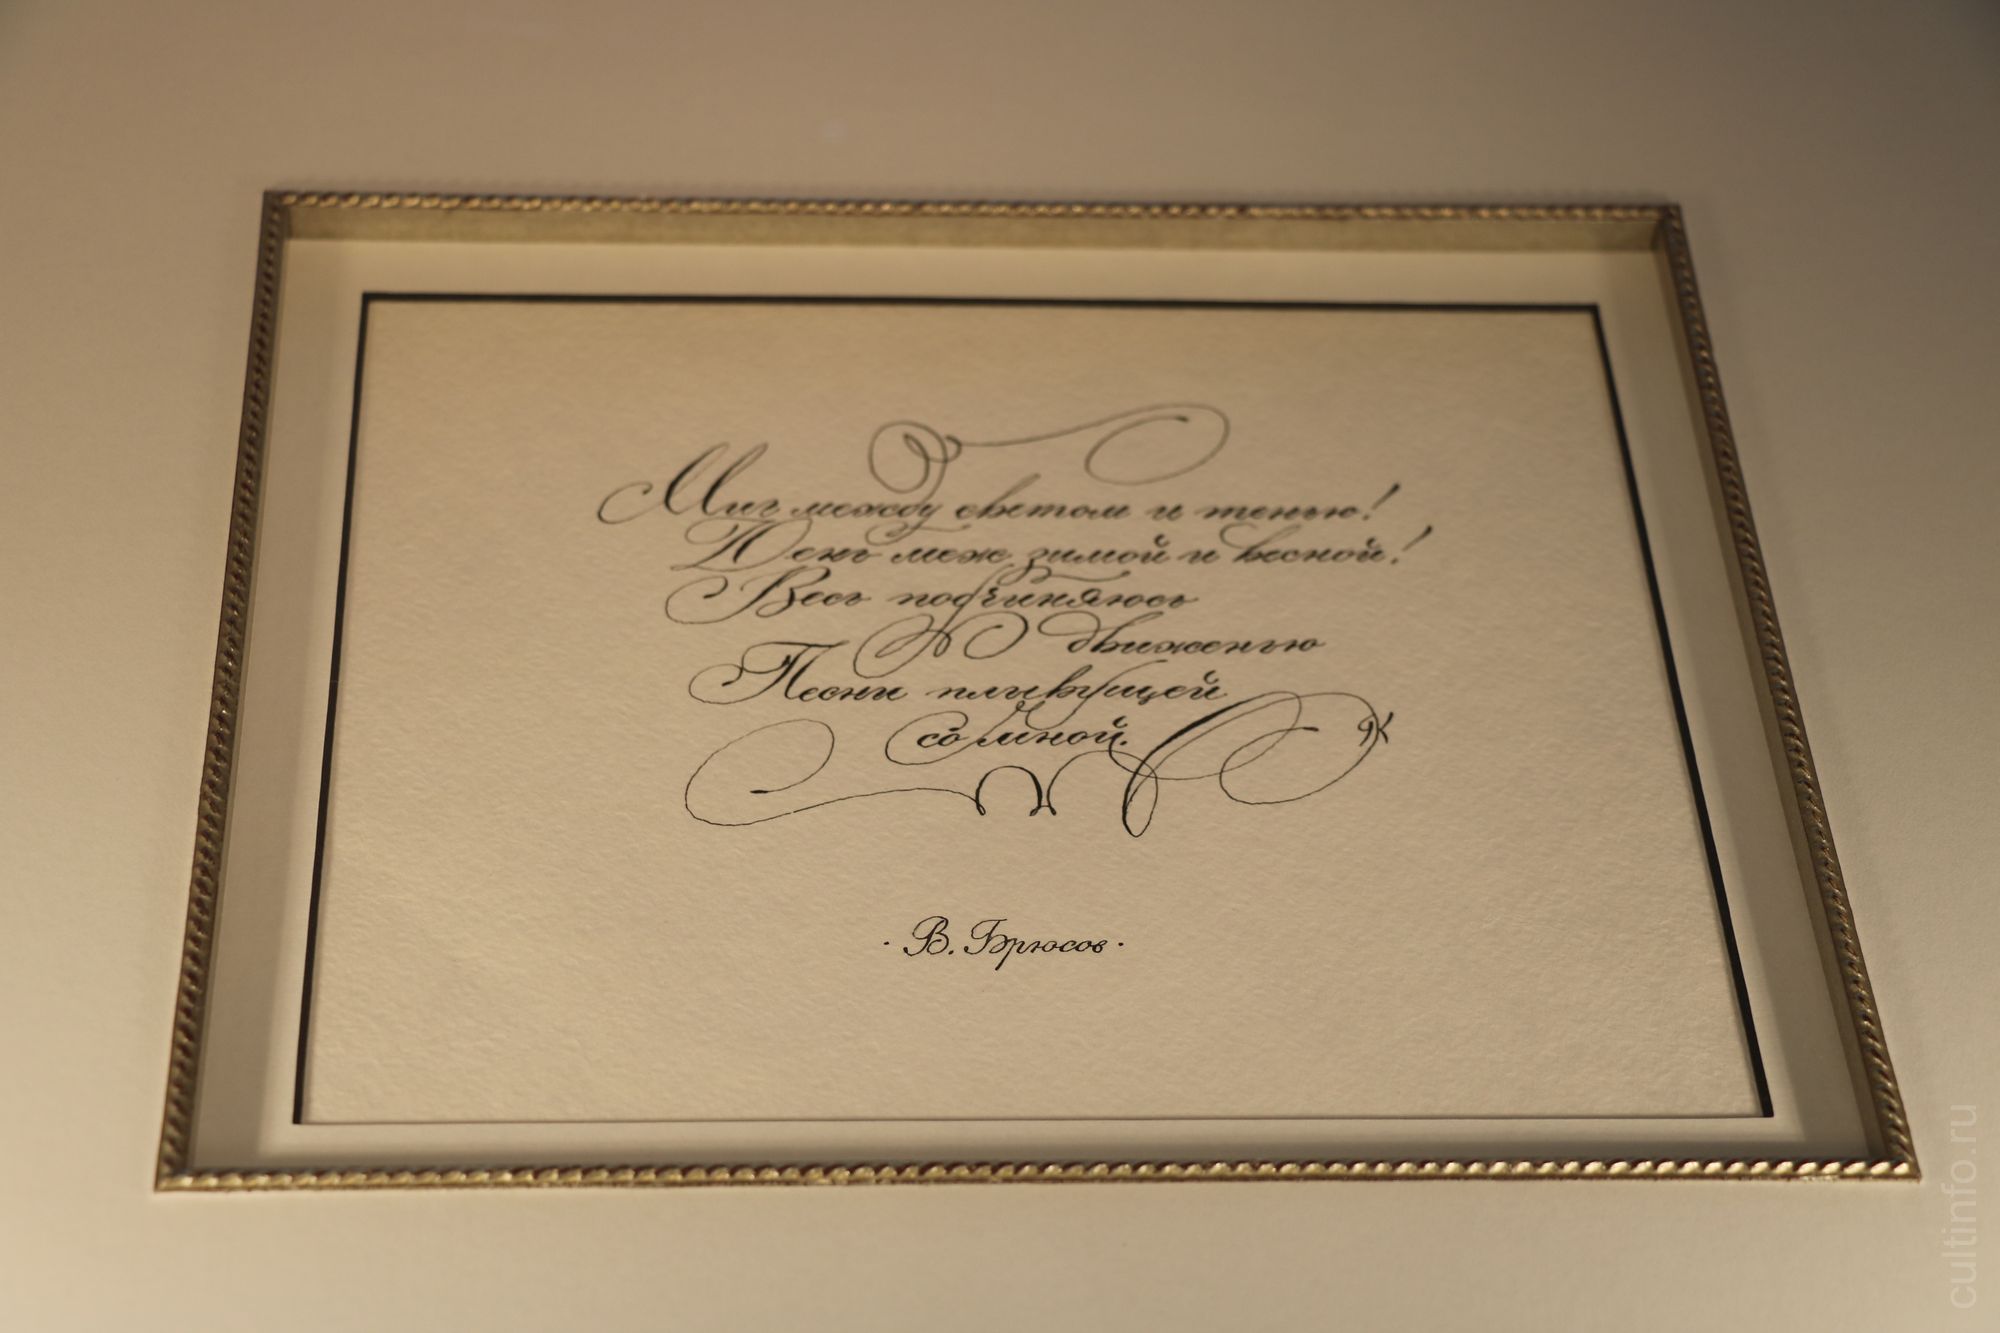 Миг между светом и тенью!
День меж зимой и весной!
Весь подчиняюсь
движенью
Песни плывущей
со мной.
ЯК
· В. Брюсов ·
cultinfo.ru